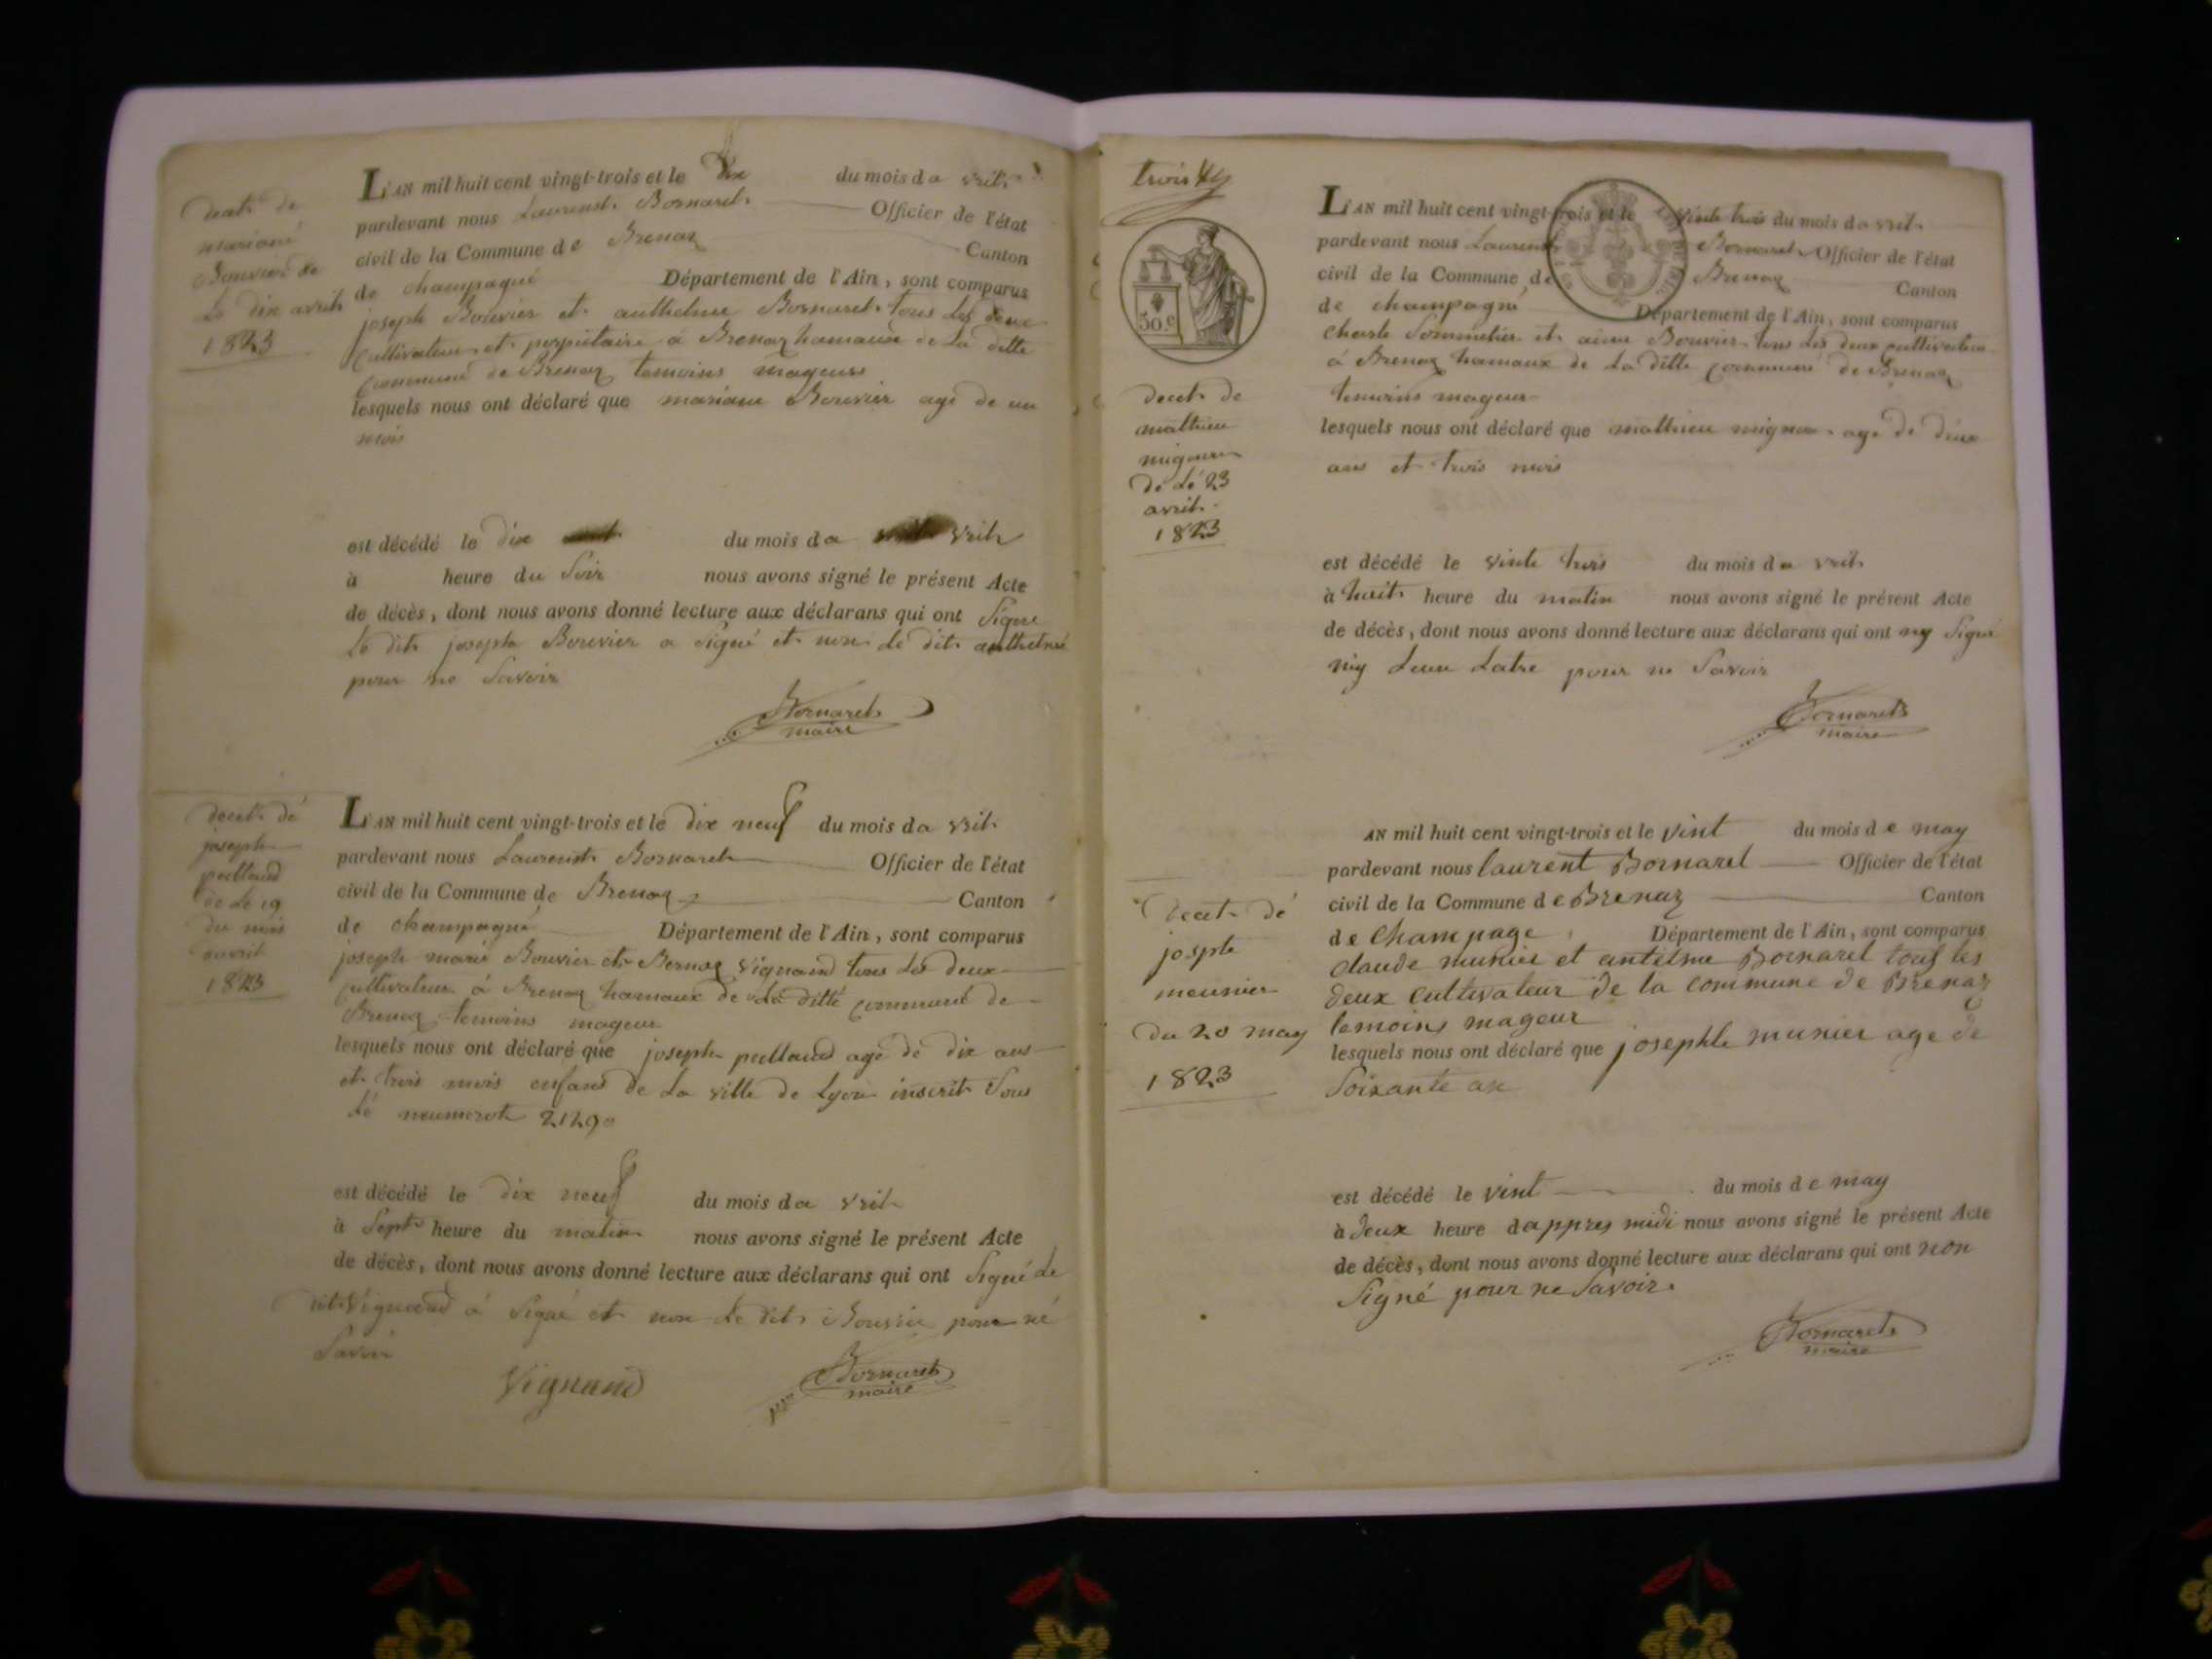 deat de
mariane
Bouvier de
Le dix avrih
1823
L'AN mil huit cent vingt-trois et le Dix du mois da vrih
pardevant nous Laurensh Bornareh Officier de l'état
civil de la Commune de Brenaz Canton
de champagné Département de l'Ain, sont comparus
joseph Bouvier et anthelme Bornareh tous Les deux
cultivateur et perpietaire a Brenaz hamauux de La ditte
commune de Brenaz temoins mageurs
lesquels nous ont déclaré que mariane Bouvier agé de un
mois
est décédé le dix du mois da vrih
à heure du Soir nous avons signé le présent Acte
de décès, dont nous avons donné lecture aux déclarans qui ont Signe
Le dit joseph Bouvier a signé et non Le dit anthelme
pour ne Savoir
Bornareh
maire
deeat dé
joseph
pullaud
de Le 19
du mois
avril
1823
L'AN mil huit cent vingt-trois et le dix neuf du mois da vrih
pardevant nous Laurensh Bornareh Officier de l'état
civil de la Commune de Brenaz Canton
de champagné Département de l'Ain, sont comparus
joseph marie Bouvier et Bernaz Vignand tous Les deux
cultivateur à Brenaz hamaux de La ditté commune de
Brenaz temoins mageur
lesquels nous ont déclaré que joseph pullaud agé de dix ans
et trois mois enfans de La ville de Lyon inscrit Sous
Lé neumeroh 21290
est décédé le dix neuf du mois da vrih
à Sept heure du matin nous avons signé le présent Acte
de décès, dont nous avons donné lecture aux déclarans qui ont Signé Le
dit Vignand à Signé et non Le dit Bouvier pour né
Savoir
Vignand
Bornareh
maire
trois
50 c
deeat de
mathieu
migner
dé Lé 23
avrih
1823
L'AN mil huit cent vingt-trois et le vinte trois du mois da vrih
pardevant nous Laurensh Bornareh Officier de l'état
civil de la Commune de Brenaz Canton
de champagné Département de l'Ain, sont comparus
Charle Sommetier et aimé Bouvier tous Les deux cultivateur
à Brenaz hamaux de La ditte commune de Brenaz
temoins mageur
lesquels nous ont déclaré que mathieu migner agé de deux
ans et trois mois
est décédé le vinte trois du mois da vrih
à huit heure du matin nous avons signé le présent Acte
de décès, dont nous avons donné lecture aux déclarans qui ont ny Signé
niy Leun Latre pour ne Savoir
Bornareh
maire
Deeat dé
josphe
meunier
du 20 may
1823
AN mil huit cent vingt-trois et le vint du mois de may
pardevant nous laurent Bornarel Officier de l'état
civil de la Commune de Brenaz Canton
de Champage Département de l'Ain, sont comparus
claude munier et antelme Bornarel tous les
deux cultivateur de la commune de Brenaz
temoins mageur
lesquels nous ont déclaré que josephte munier age de
Soixante an
est décédé le vint du mois de may
à deux heure dappres midi nous avons signé le présent Acte
de décès, dont nous avons donné lecture aux déclarans qui ont non
Signé pour ne Savoir.
Bornareh
maire